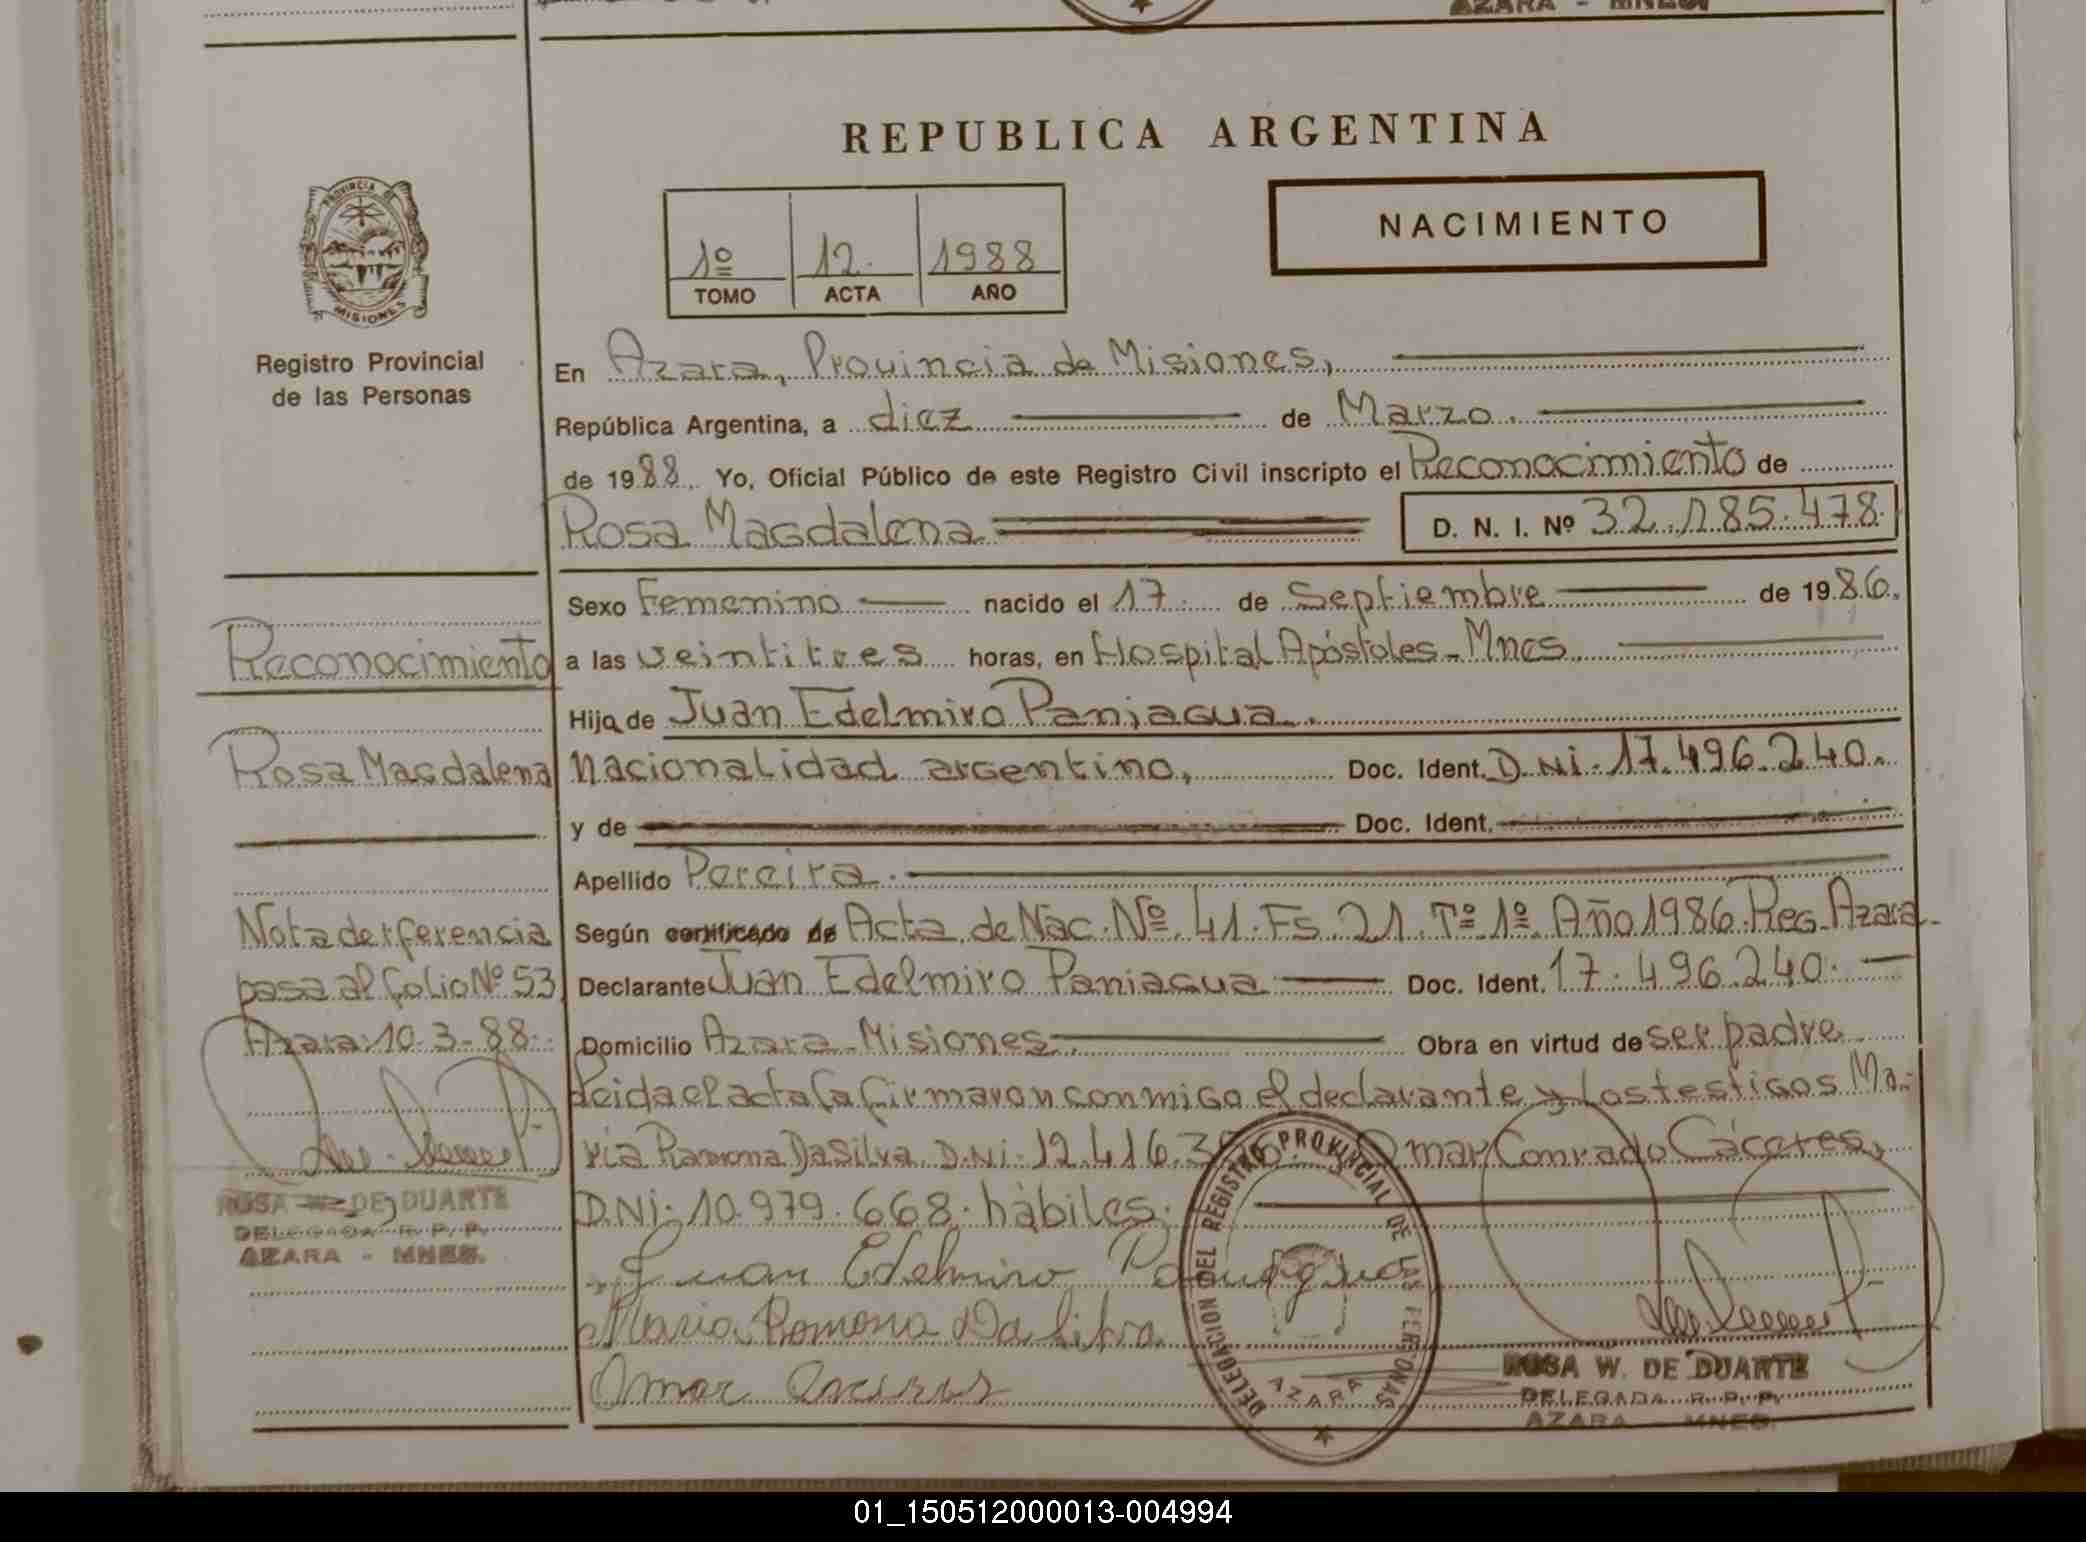 AZARA - MNES.
REPUBLICA ARGENTINA
NACIMIENTO
1º 12. 1988
TOMO ACTA AÑO
PROVINCIA DE MISIONES
Registro Provincial
de las Personas
En Azara, Provincia de Misiones,
República Argentina, a diez de Marzo.
de 1988. Yo, Oficial Público de este Registro Civil inscripto el Reconocimiento de
Rosa Magdalena D. N. I. Nº 32.185.478.
Sexo Femenino nacido el 17. de Septiembre de 1986.
a las veintitres horas, en Hospital Apóstoles-Mnes.
Hija de Juan Edelmiro Paniagua.
Nacionalidad argentino, Doc. Ident. D.Ni. 17.496.240.
y de Doc. Ident.
Apellido Pereira.
Según certificado de Acta de Nac. Nº 41. Fs. 21. Tº 1º Año 1986. Reg. Azara-
Declarante Juan Edelmiro Paniagua Doc. Ident. 17.496.240.
Domicilio Azara-Misiones. Obra en virtud de ser padre.
Leida el acta la firmaron conmigo el declarante y los testigos Ma-
ria Ramona DaSilva D.Ni. 12.416. Omar Conrado Cáceres,
D.Ni. 10.979.668. hábiles.
Juan Edelmiro Paniagua
Maria Ramona Da Silva
Omar Caceres
Reconocimiento
Rosa Magdalena
Nota de rferencia
pasa al folio Nº 53
Azara 10-3-88.
ROSA W. DE DUARTE
DELEGADA R. P. P.
AZARA - MNES.
DELEGACION DEL REGISTRO PROVINCIAL DE LAS PERSONAS
AZARA
ROSA W. DE DUARTE
DELEGADA R. P. P.
AZARA MNES.
01_150512000013-004994